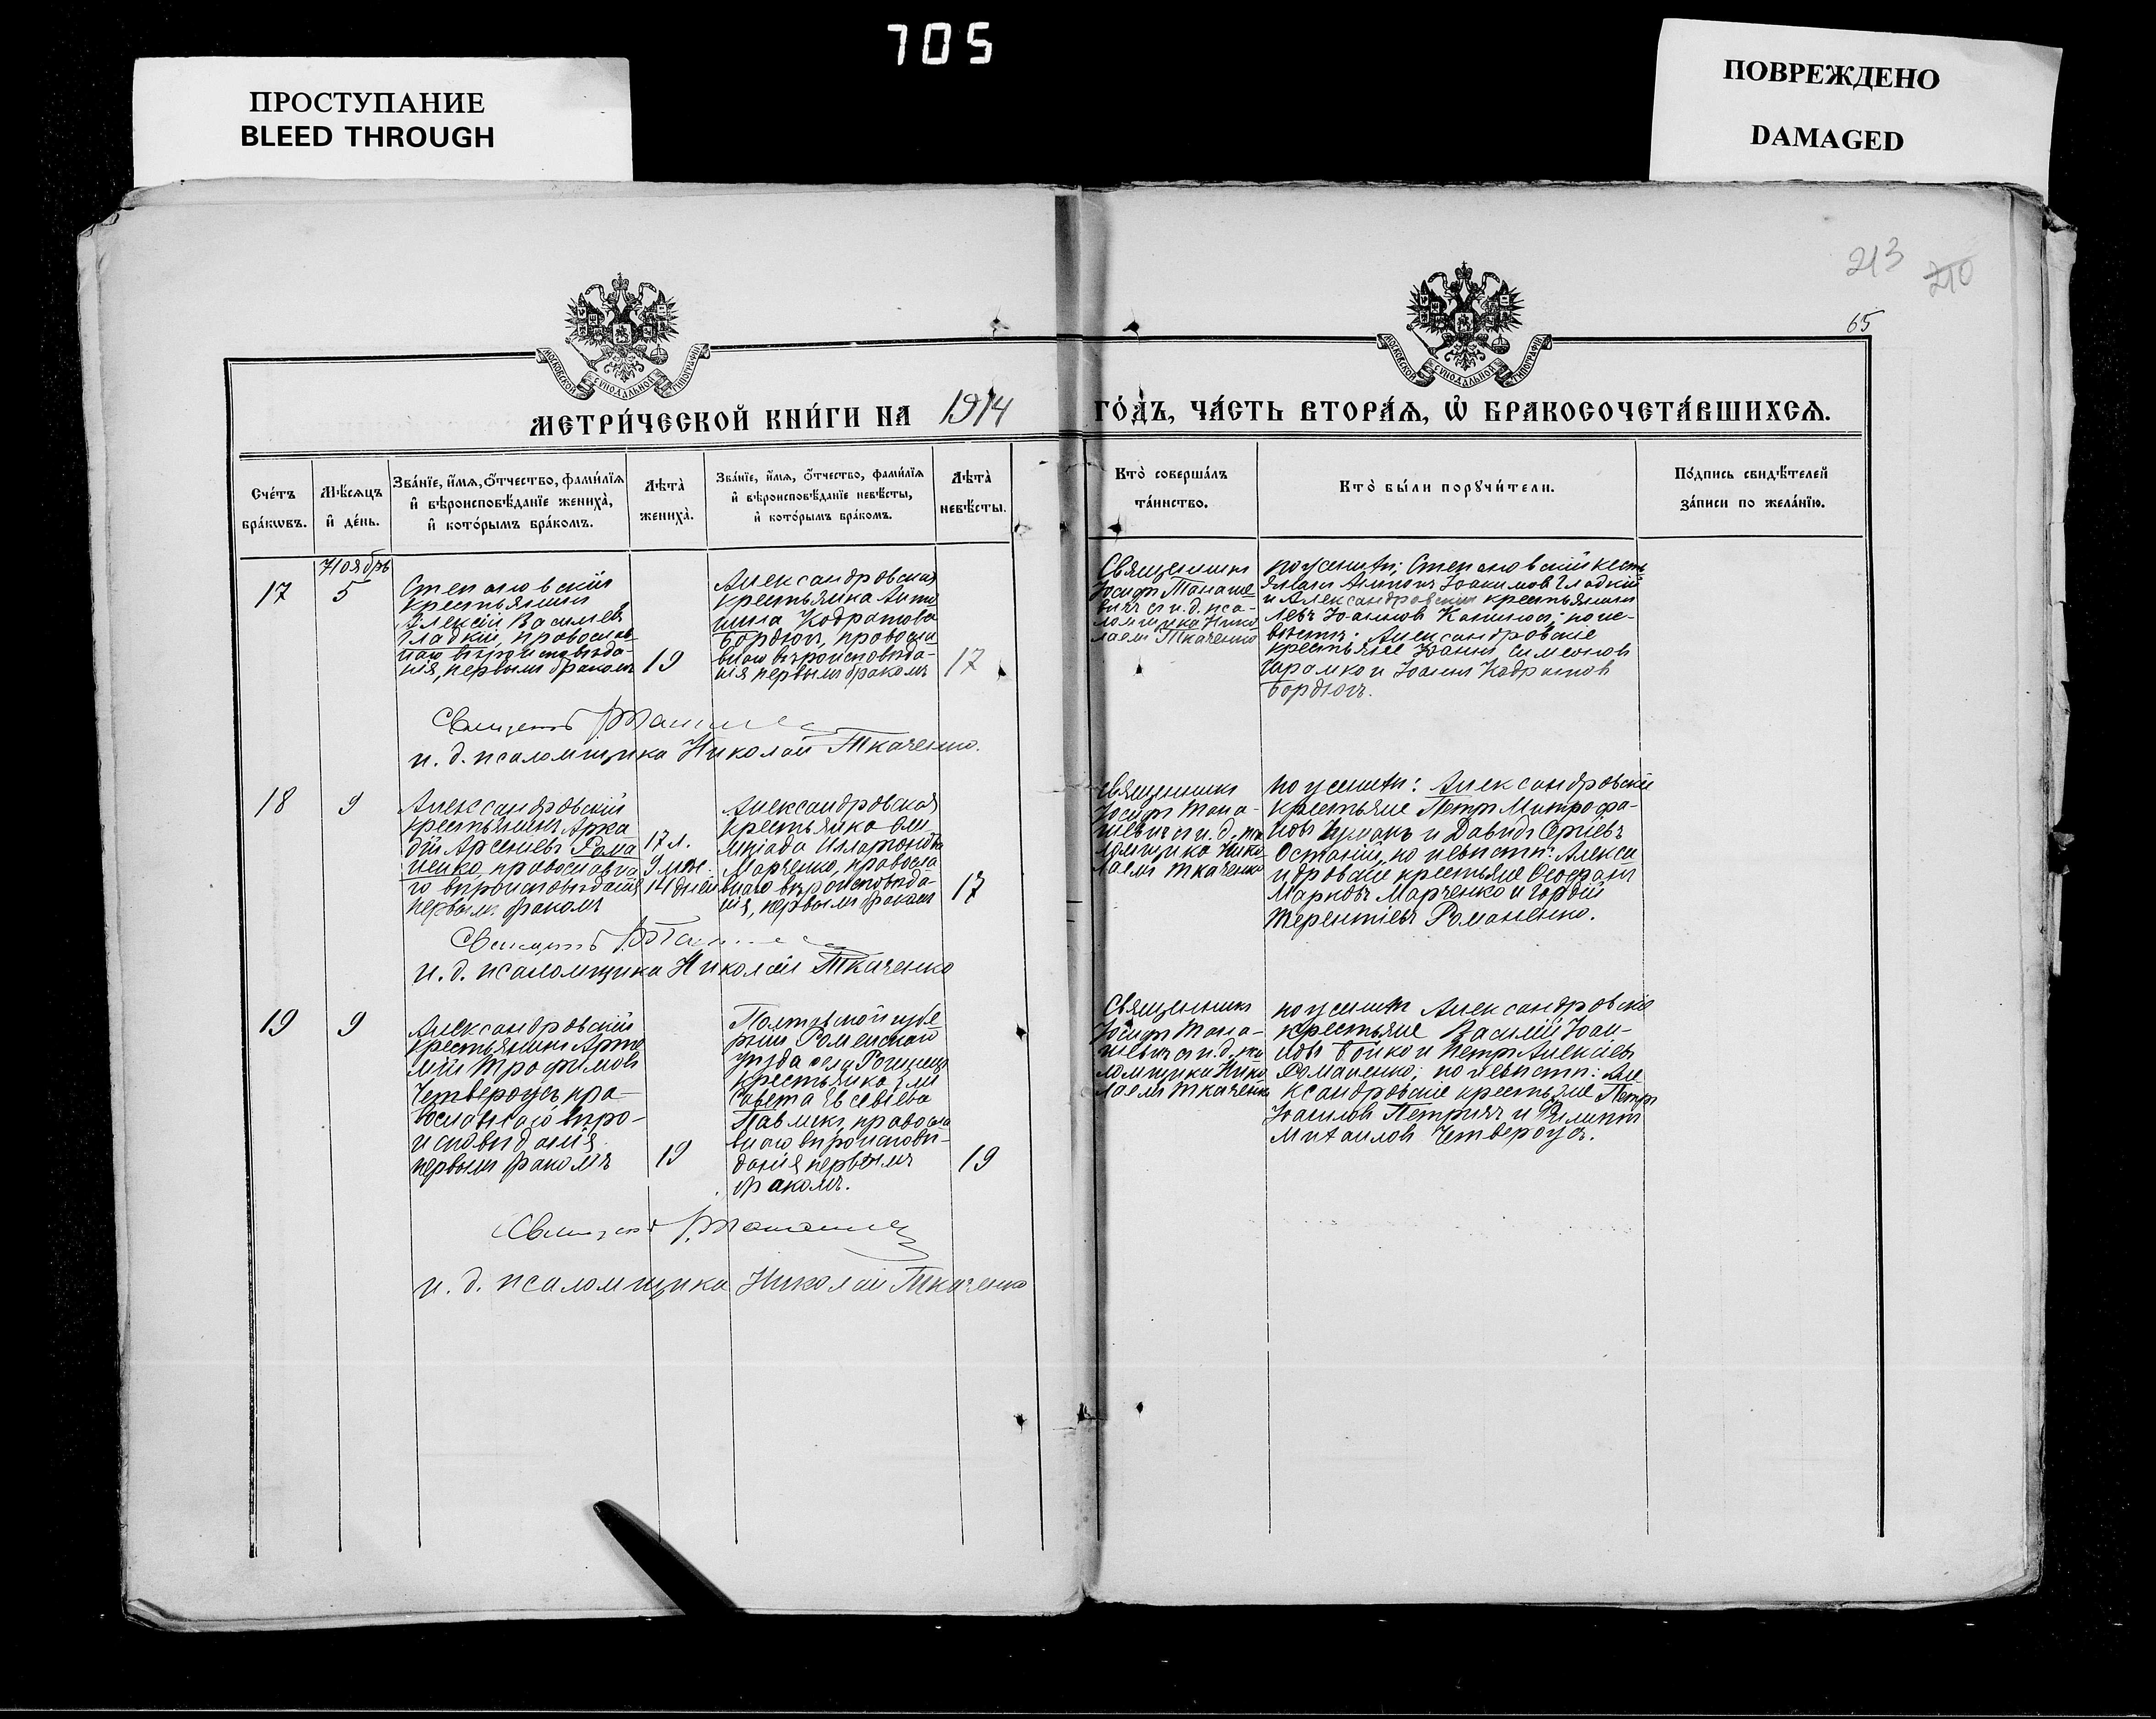 705
ПРОСТУПАНИЕ
BLEED THROUGH
ПОВРЕЖДЕНО
DAMAGED
213
210
65
МОСКОВСКОЙ СѴНОДАЛЬНОЙ ТИПОГРАФІИ
МОСКОВСКОЙ СѴНОДАЛЬНОЙ ТИПОГРАФІИ
МЕТРИ́ЧЕСКОЙ КНИ́ГИ НА 1914
ГО́ДЪ, ЧА́СТЬ ВТОРА́Ѧ, Ѽ БРАКОСОЧЕТА́ВШИХСѦ.
Сче́тъ
бра́кѡвъ.
Мѣ́сѧцъ
и҆ де́нь.
Зва́нїе, и҆́мѧ, ѻ҆́тчество, фами́лїѧ
и҆ вѣроисповѣ́данїе жениха̀,
и҆ кото́рымъ бра́комъ.
Лѣта̀
жениха̀.
Зва́нїе, и҆́мѧ, ѻ҆́тчество, фами́лїѧ
и҆ вѣроисповѣ́данїе невѣ́сты,
и҆ кото́рымъ бра́комъ.
Лѣта̀
невѣ́сты.
Кто̀ соверша́лъ
та́инство.
Кто̀ бы́ли порꙋчи́тели.
По́дпись свидѣ́телей
за́писи по жела́нїю.
17
Ноябрь
5
Степановскій
крестьянинъ
Алексій Васильевъ
Гладкій, православ
наго вѣроисповѣда-
нія, первымъ бракомъ
19
Александровская
крестьянка Анто
нина Кодратова
Бордюгъ, правосла
внаго вѣроисповѣда-
нія первымъ бракомъ
17
Священникъ
Іосифъ Танаше
вичъ съ и. д. пса-
ломщика Нико
лаемъ Ткаченко
по женихѣ; Степановскій крест
янинъ Антонъ Іоакимовъ Гладкій
и Александровскій крестьянинъ
Левъ Іоанновъ по не-
вѣстѣ: Александровскіе
крестьяне Іоаннъ Симеоновъ
и Іоаннъ Кодратовъ
Бордюгъ.
Священникъ
и. д. псаломщика Николай Ткаченко.
18
9
Александровскій
крестьянинъ Арка
дій Арсеніевъ Рома
ненко, православна
го вѣроисповѣданія
первымъ бракомъ
17 л.
9 мѣс.
14 дней
Александровская
крестьянка Оли
мпіада Илларіонова
Марченко, правосла
внаго вѣроисповѣда-
нія, первымъ бракомъ
17
Священникъ
Іосифъ Тана-
шевичъ съ и. д. пса
ломщика Нико
лаемъ Ткаченко
по женихѣ: Александровскіе
крестьяне Петръ Митрофа-
новъ Чумакъ и Давидъ Сергіевъ
по невѣстѣ: Алекса
ндровскіе крестьяне Ѳеофанъ
Марковъ Марченко и Гордій
Терентіевъ Романенко.
Священникъ
и. д. псаломщика Николай Ткаченко
19
9
Александровскій
крестьянинъ Арте
мій Трофимовъ
Четвероусъ пра-
вославнаго вѣро-
исповѣданія
первымъ бракомъ
19
Полтавской губе
рніи Роменскаго
уѣзда села
крестьянка Ели
савета Евсевіева
Павликъ, правосла
внаго вѣроисповѣ-
данія первымъ
бракомъ.
19
Священникъ
Іосифъ Тана-
шевичъ съ и. д. пса
ломщика Нико
лаемъ Ткаченко
по женихѣ Александровскіе
крестьяне Василій Іоан-
новъ Бойко и Петръ Алексіевъ
Романенко; по невѣстѣ: Але
ксандровскіе крестьяне Петръ
Іоанновъ Петрикъ и Филиппъ
Михаиловъ Четвероусъ.
Священникъ
и. д. псаломщика Николай Ткаченко